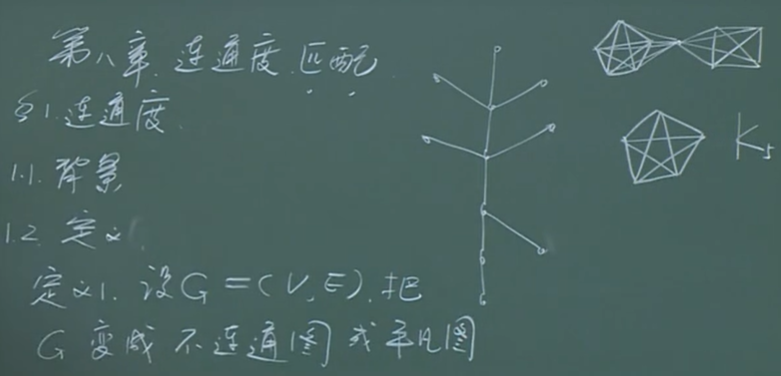 第八章 连通度 匹配
§1. 连通度
1.1. 背景
1.2. 定义
定义1. 设G=(V,E).把
G变成不连通图或平凡图
K₅